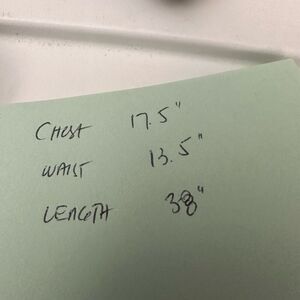 CHEST 17.5"
WAIST 13.5"
LENGTH 38"